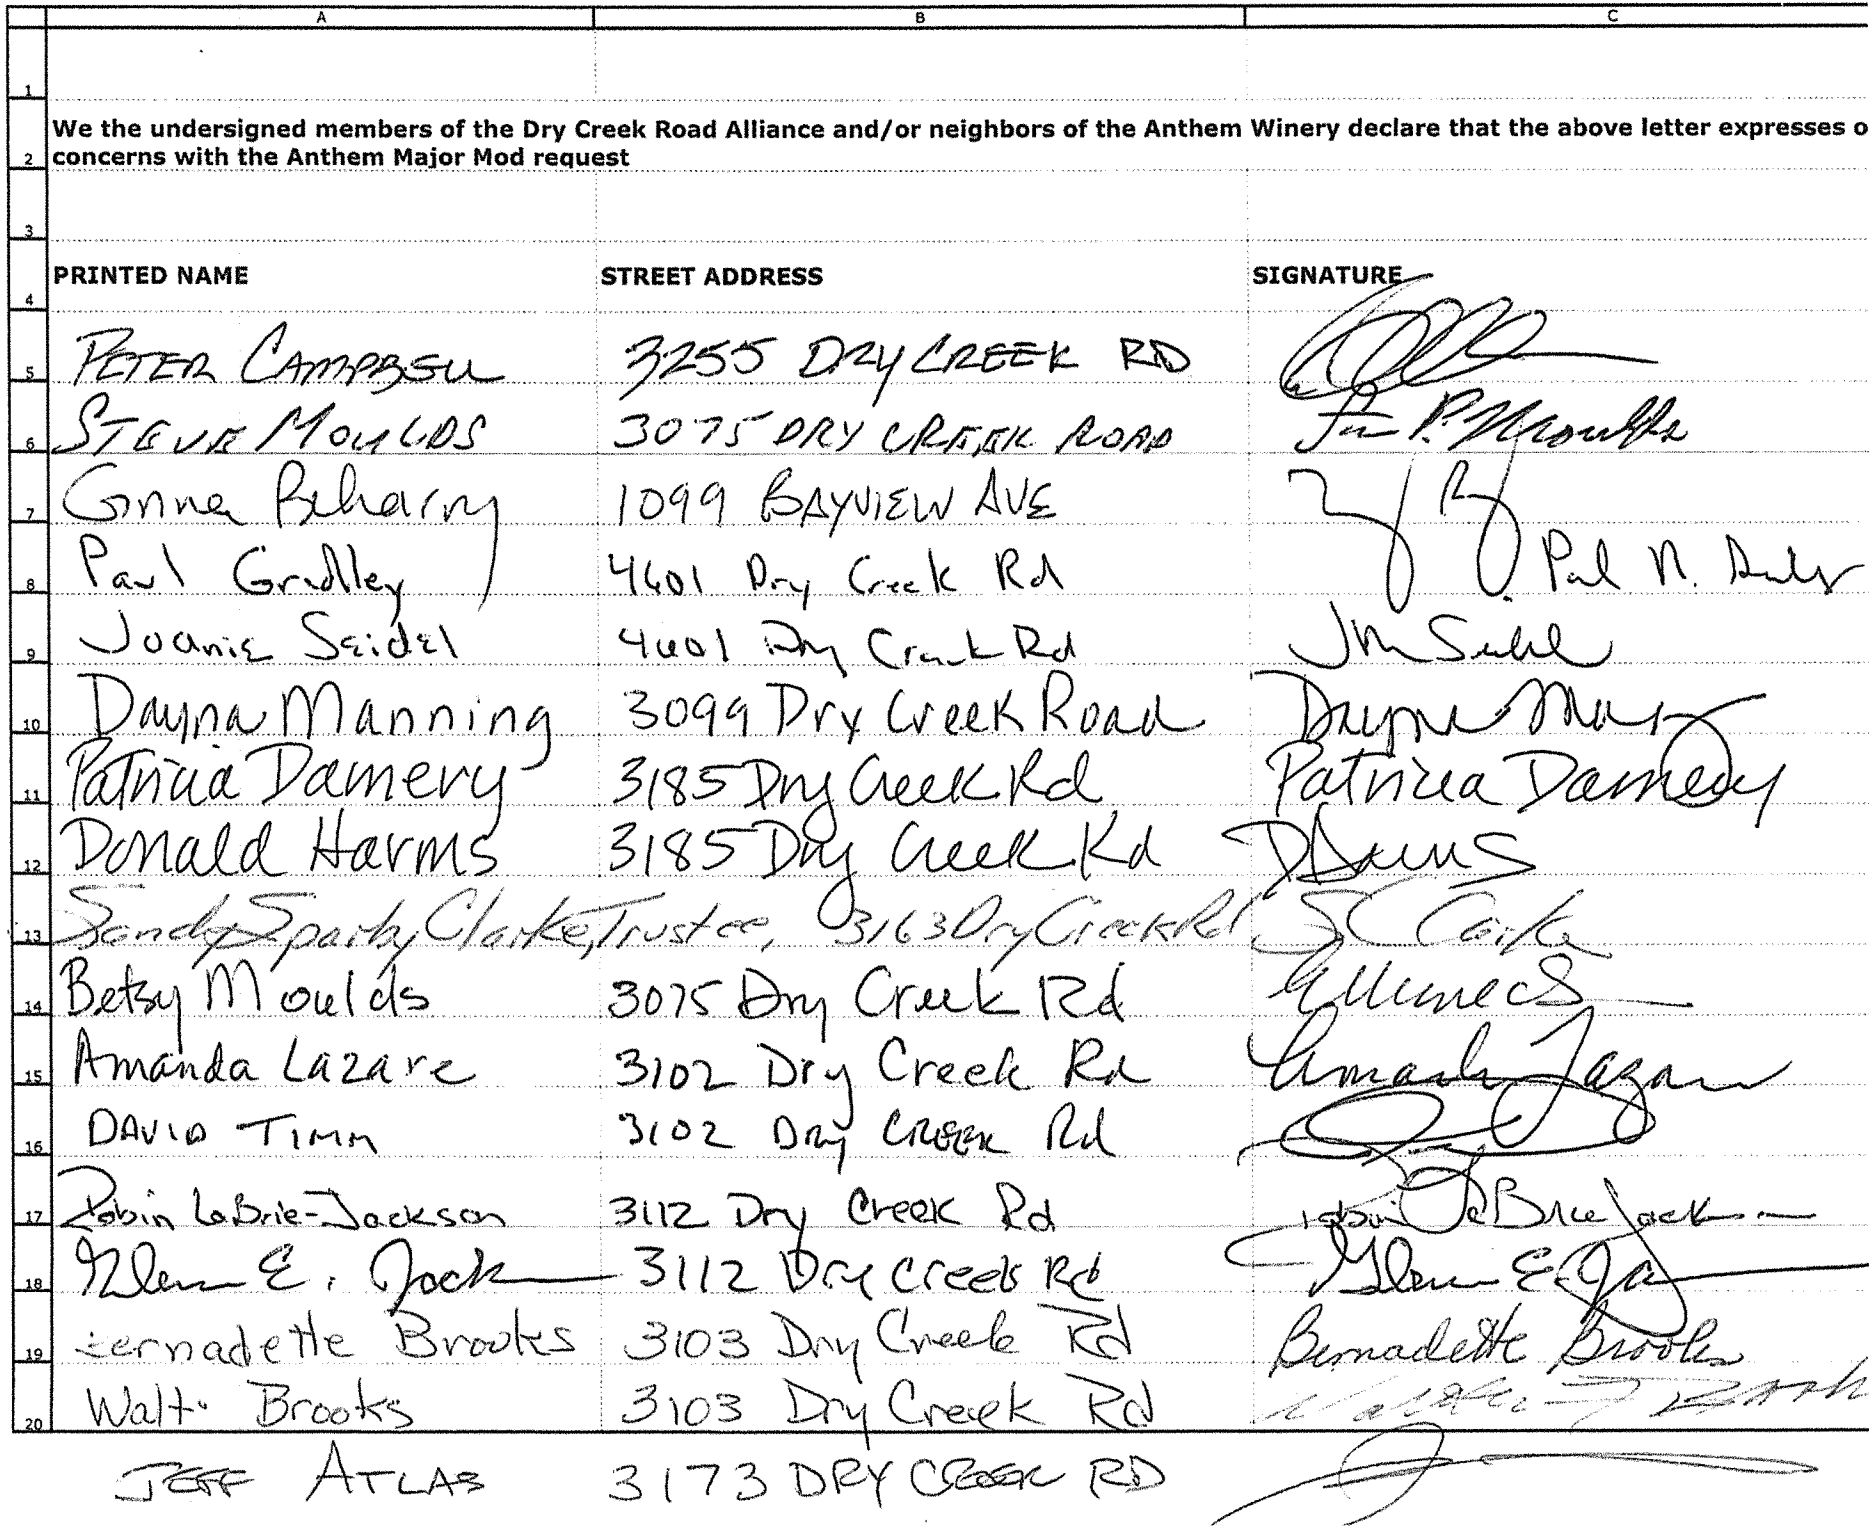 A B C
1
We the undersigned members of the Dry Creek Road Alliance and/or neighbors of the Anthem Winery declare that the above letter expresses o
2 concerns with the Anthem Major Mod request
3
4 PRINTED NAME STREET ADDRESS SIGNATURE
5 PETER CAMPBELL 3255 DRY CREEK RD
6 STEVE MOULDS 3075 DRY CREEK ROAD P. Moulds
7 Beharry 1099 BAYVIEW AVE
8 Paul Gridley 4601 Dry Creek Rd Paul N.
9 Joanie Seidel 4601 Dry Creek Rd
10 Dayna Manning 3099 Dry Creek Road Dayna
11 Patricia Damery 3185 Dry Creek Rd Patricia Damery
12 Donald Harms 3185 Dry Creek Rd D Harms
13 Sandy Sparby Clarke, Trustee, 3163 Dry Creek Rd S C Clarke
14 Betsy Moulds 3075 Dry Creek Rd
15 Amanda Lazare 3102 Dry Creek Rd Amanda Lazare
16 DAVID TIMM 3102 Dry CREEK Rd
17 Robin LaBrie-Jackson 3112 Dry Creek Rd Robin LaBrie Jackson
18 Glenn E. Jack 3112 Dry Creek Rd Glenn E. Ja
19 Bernadette Brooks 3103 Dry Creek Rd Bernadette Brooks
20 Walt Brooks 3103 Dry Creek Rd
JEFF ATLAS 3173 DRY CREEK RD